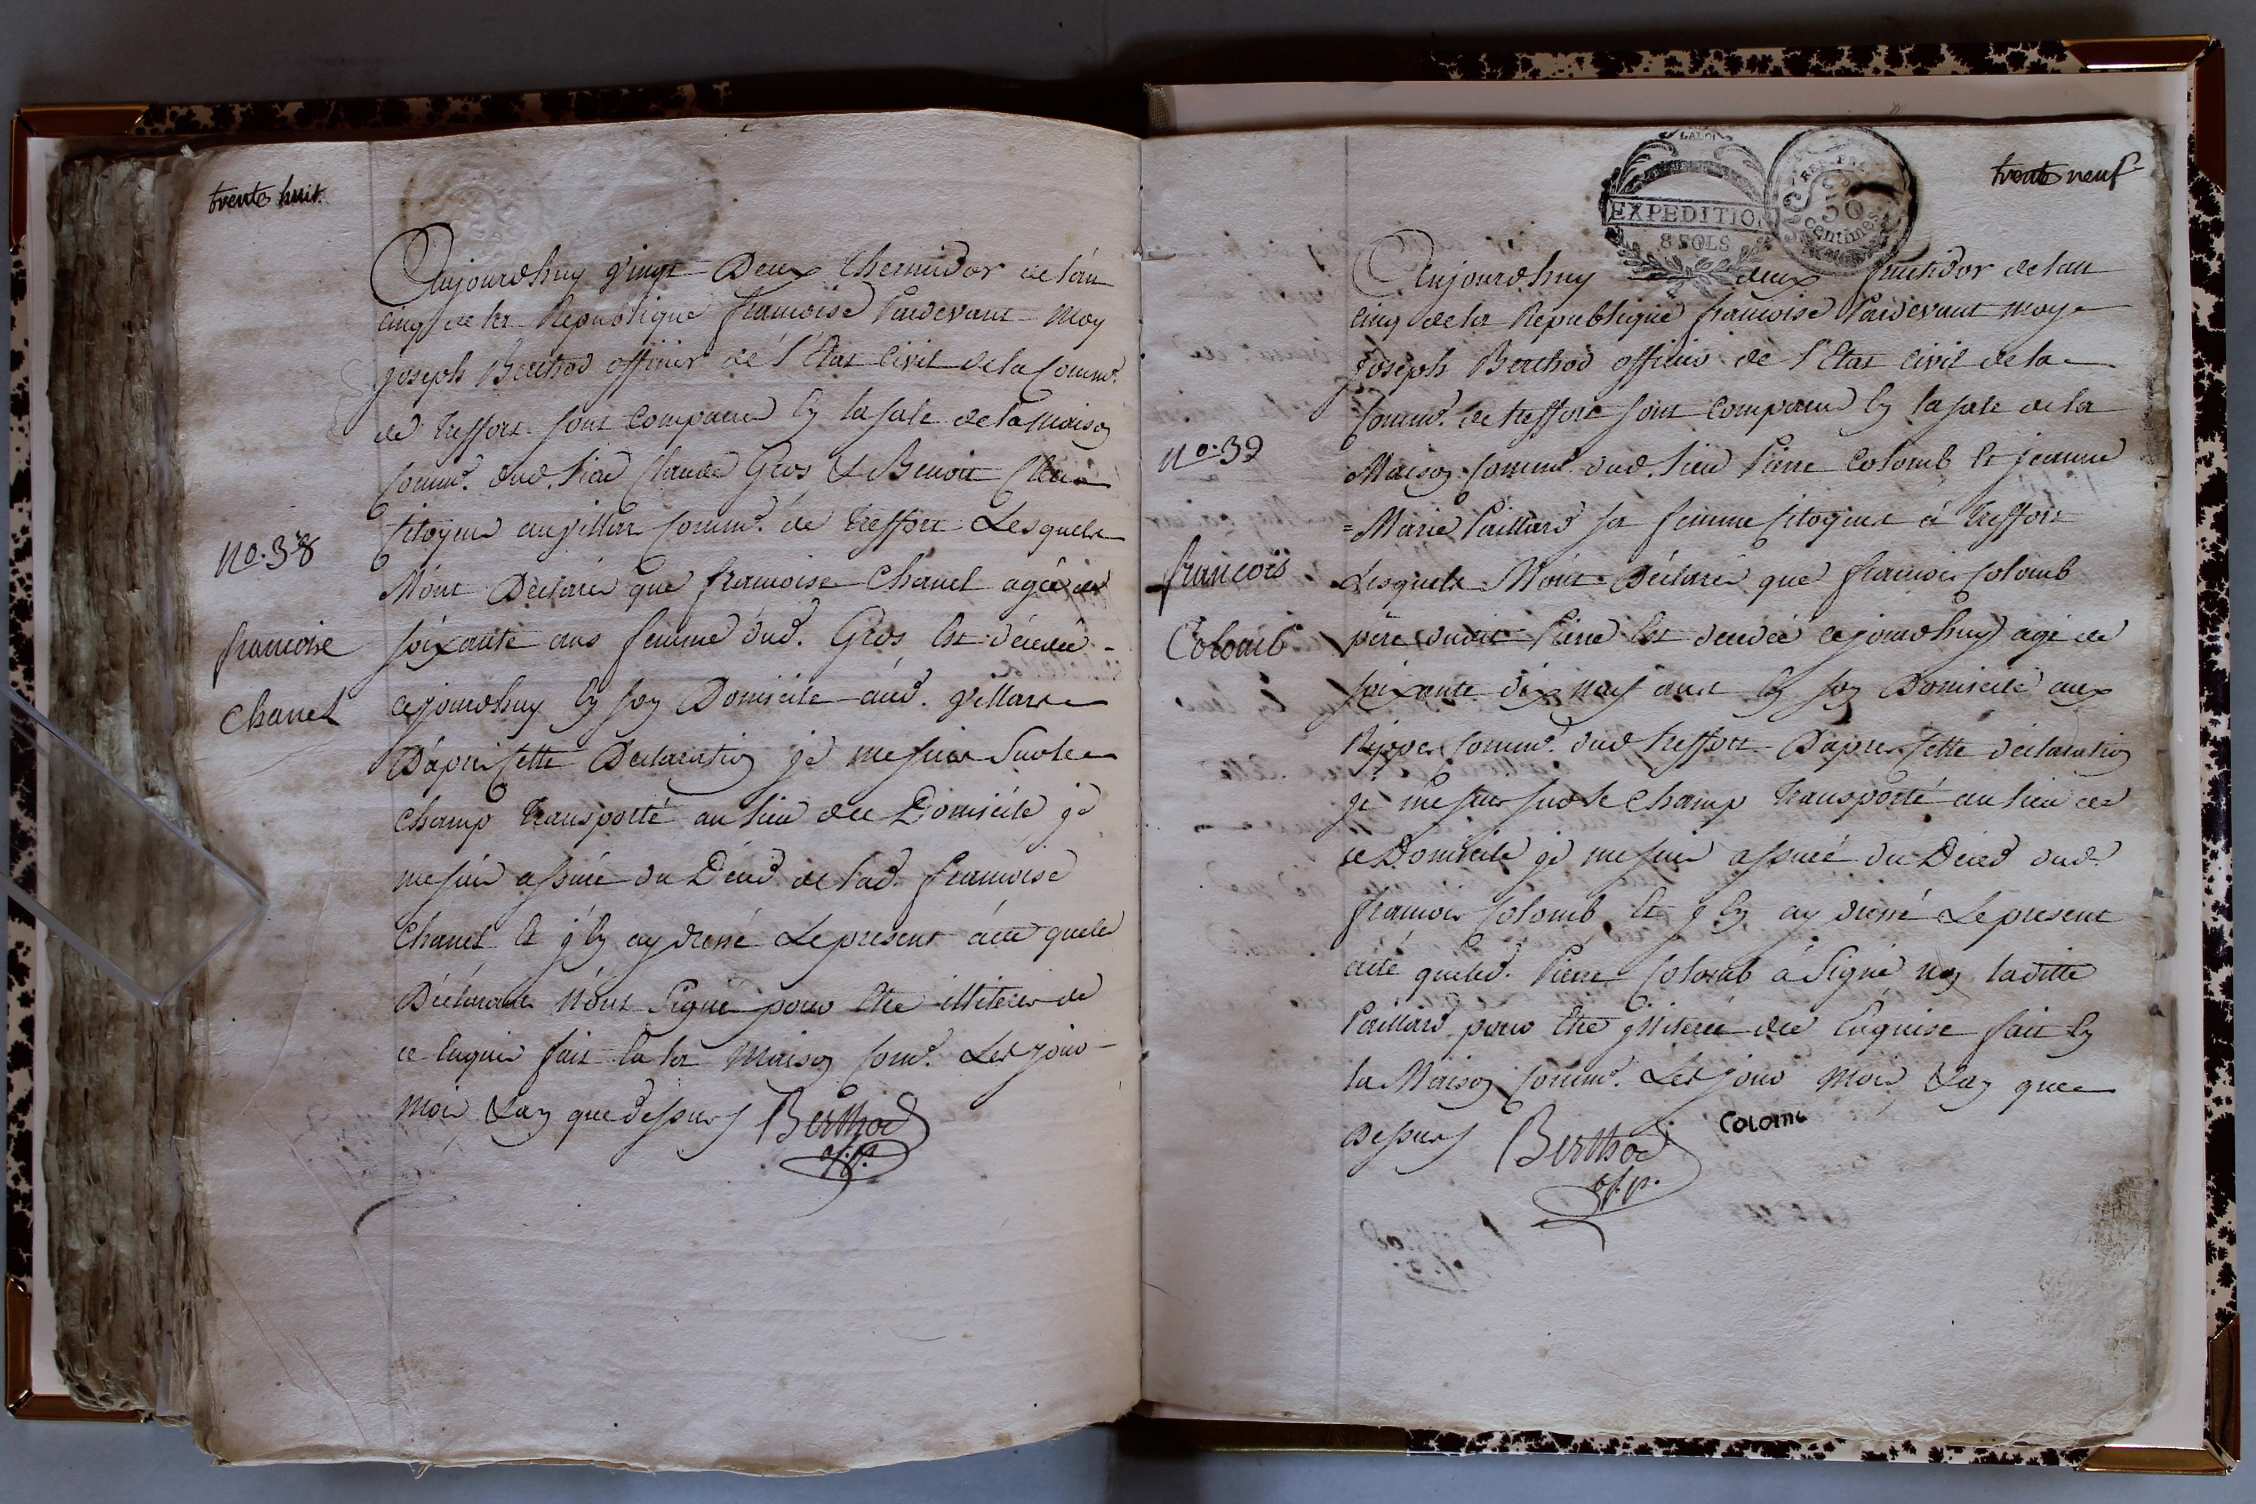 trente huit.
Aujourdhuy vingt Deux thermidor de l'an
cinq de la Republique françoise Pardevant moy
joseph Berthod officier de l'Etat Civil de la Comm.
de treffort sont Comparu En la sale de la Maison
Comm. dud. lieu Claude Gros & Benoit
Citoyens au villars Comm. de treffort Lesquels
M'ont Declaré que françoise Chanel agée de
soixante ans femme dud. Gros Est décédée
cejourdhuy En son Domicile aud. villars
D'apres Cette Declaration je me suis Sur le
Champ transporté au lieu de ce Domicile je
me suis assuré du Décéd de lad. françoise
Chanel Et j'En ay dressé Le present acte que les
Déclarants N'ont Signé pour Etre illiterés de
ce Enquis fait En la Maison Comm. Les jour
mois & an que dessus Berthod
of. p.
No. 38
françoise
Chanel
trente neuf
LA LOI
EXPEDITION
8 SOLS
REP. FRA.
50
Centimes
Aujourdhuy deux fructidor de lan
cinq de la Republique françoise Pardevant moy
Joseph Berthod officier de l'Etat Civil de la
Comm. de treffort sont Comparu En la sale de la
Maison Comm. dud. lieu Pierre Colomb Et jeanne
=Marie Paillard sa femme Citoyens à treffort
Lesquels M'ont Déclaré que françois Colomb
père dudit Pierre Est décédé cejourdhuy agé de
soixante dix neuf ans En son Domicile aux
Rippes Comm. dud treffort D'apres Cette déclaration
je me suis sur le Champ transporté au lieu de
ce Domicile je me suis assuré du Décéd dud.
françois Colomb Et j'En ay dressé Le present
acte que led. Pierre Colomb à Signé non laditte
Paillard pour Etre illiterée de ce Enquise fait En
la Maison Comm. Les jour mois & an que
dessus Berthod Colomb
of. p.
No. 39
françois
Colomb